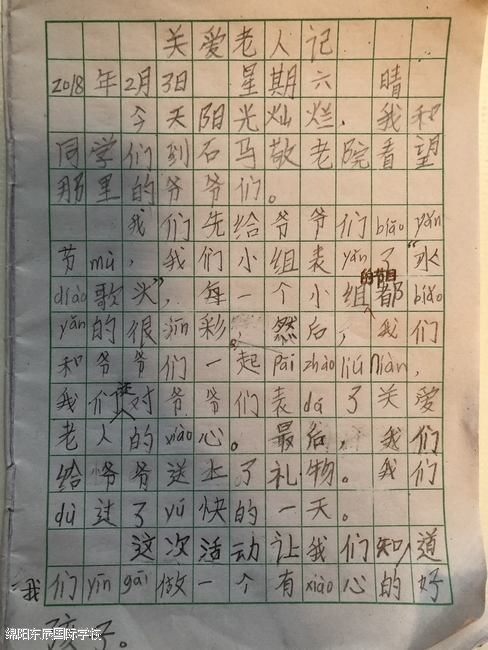 关爱老人记
2018年2月3日 星期六 晴
今天阳光灿烂，我和
同学们到石马敬老院看望
那里的爷爷们。
我们先给爷爷们biǎo yǎn
节mù，我们小组表yǎn了“水
diào歌头”，每一个小组的节目都biǎo
yǎn的很jīn彩，然后，我们
和爷爷们一起pāi zhào liú niàn，
我们还对爷爷们表dá了关爱
老人的xiào心。最后，我们
给爷爷送上了礼物。我们
dù过了yú快的一天。
这次活动让我们知道
我们yīn gāi做一个有xiào心的好
孩子。
绵阳东辰国际学校